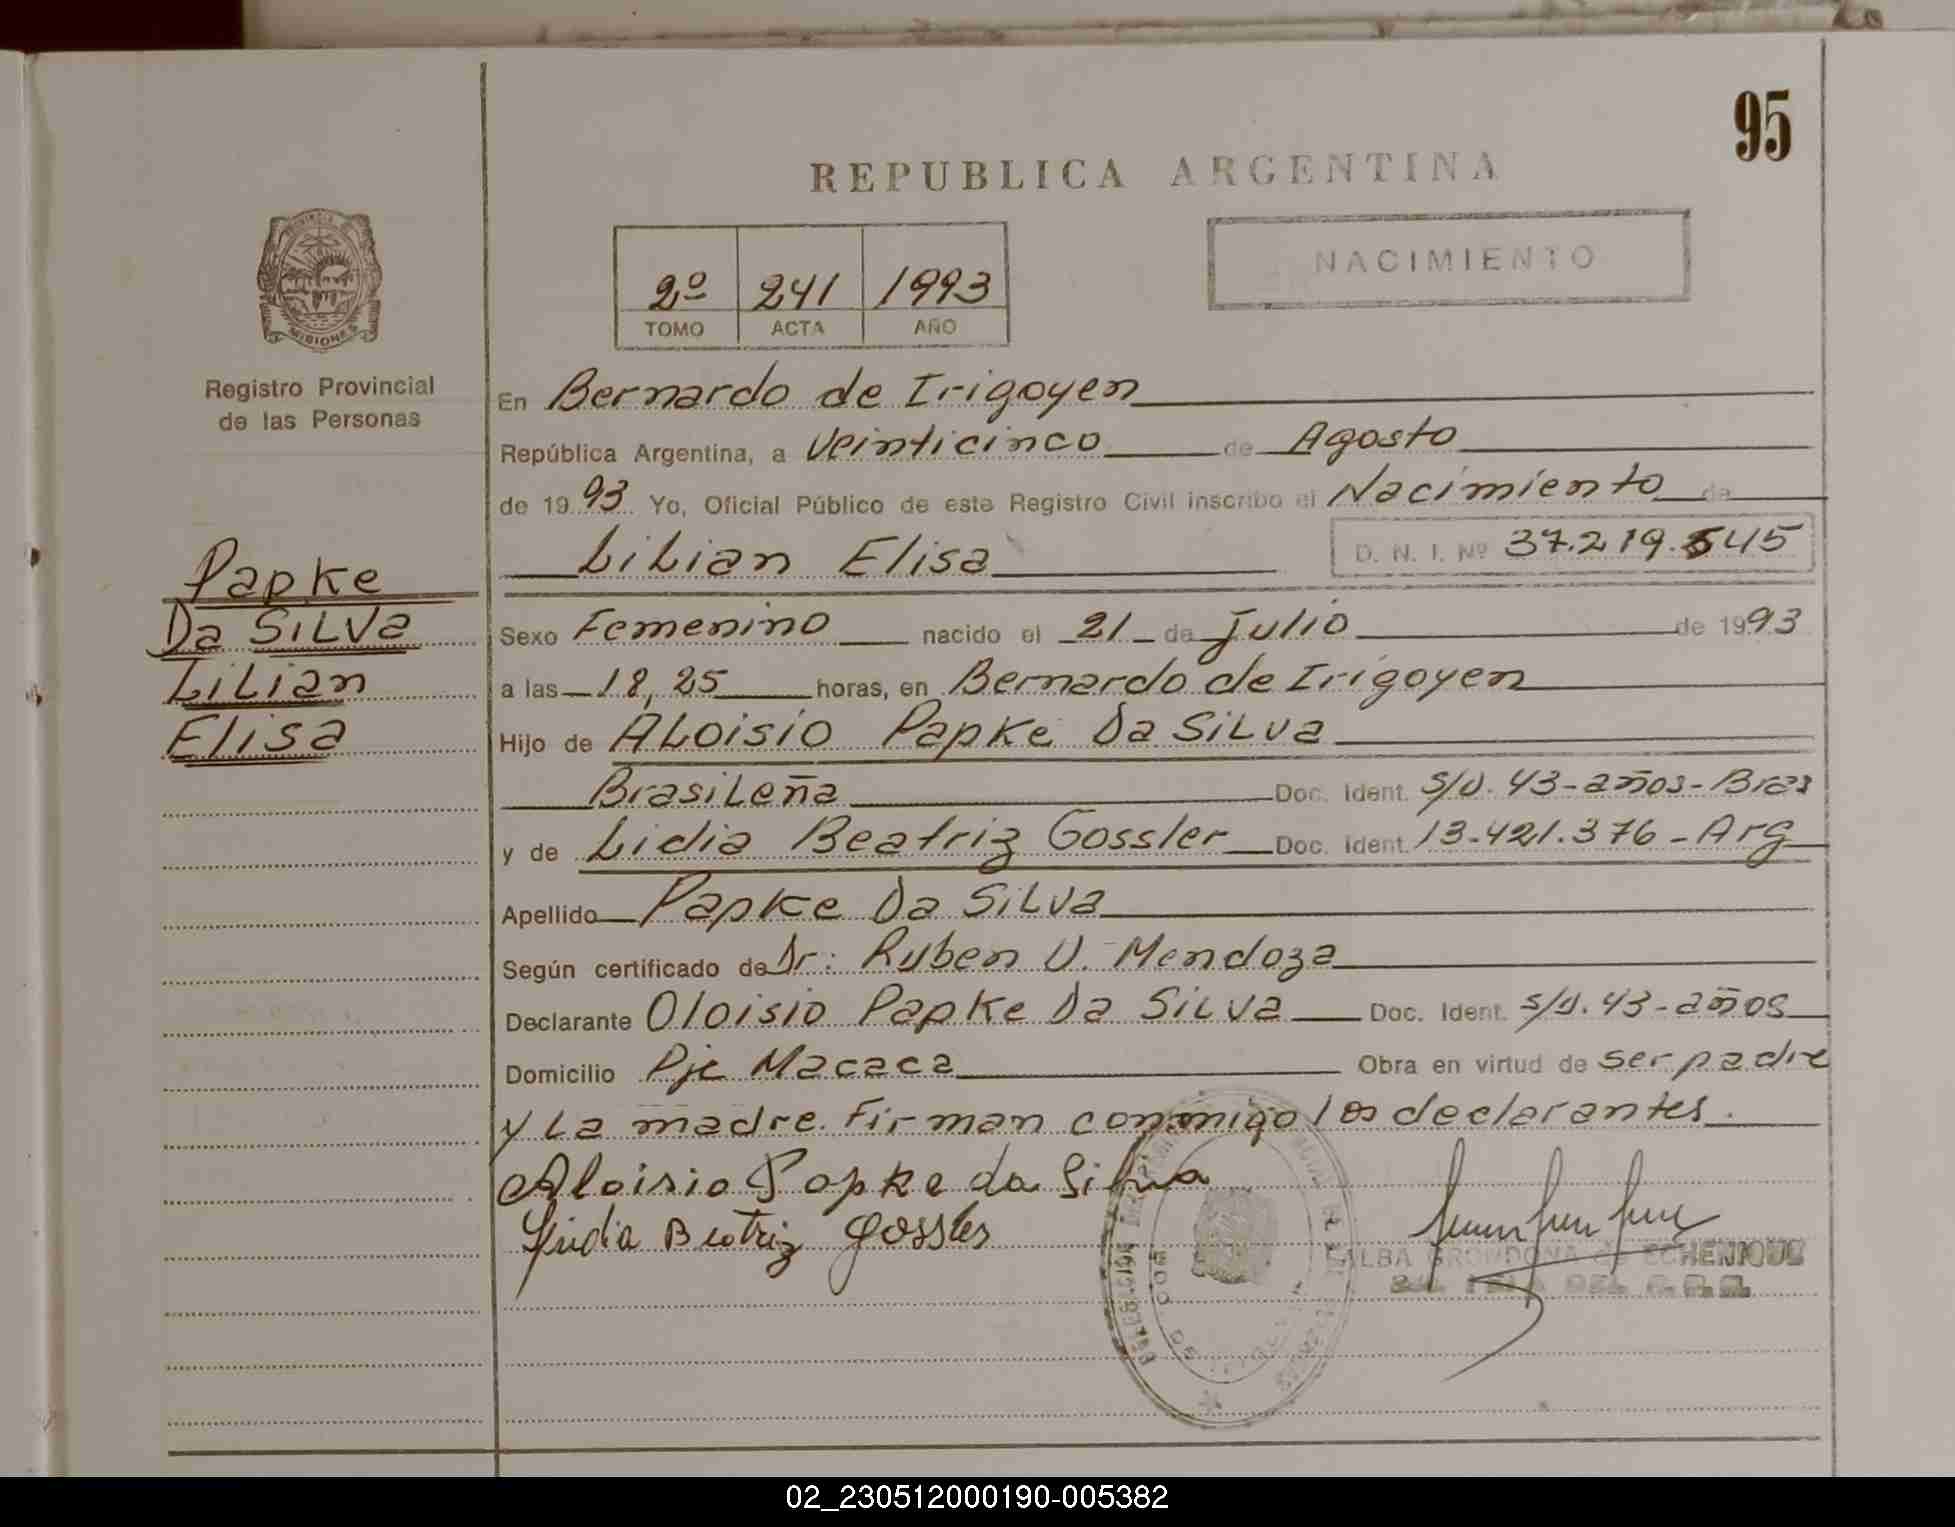 95
REPUBLICA ARGENTINA
PROVINCIA
MISIONES
Registro Provincial
de las Personas
2º 241 1993
TOMO ACTA AÑO
NACIMIENTO
En Bernardo de Irigoyen
República Argentina, a veinticinco de Agosto
de 1993 Yo, Oficial Público de este Registro Civil inscribo el Nacimiento de
Lilian Elisa D. N. I. Nº 37.219.545
Papke
Da Silva
Lilian
Elisa
Sexo Femenino nacido el 21 de Julio de 1993
a las 18,25 horas, en Bernardo de Irigoyen
Hijo de Aloisio Papke Da Silva
Brasileña Doc. Ident. s/d. 43-años-Bras
y de Lidia Beatriz Gossler Doc. Ident. 13.421.376-Arg
Apellido Papke Da Silva
Según certificado de Dr: Ruben U. Mendoza
Declarante Oloisio Papke Da Silva Doc. Ident. s/d. 43-años
Domicilio Pje Macaca Obra en virtud de ser padre
y La madre. Firman conmigo los declarantes.
Aloisio Papke da Silva
Lidia Beatriz Gossler
ALBA GRONDONA de ECHENIQUE
02_230512000190-005382